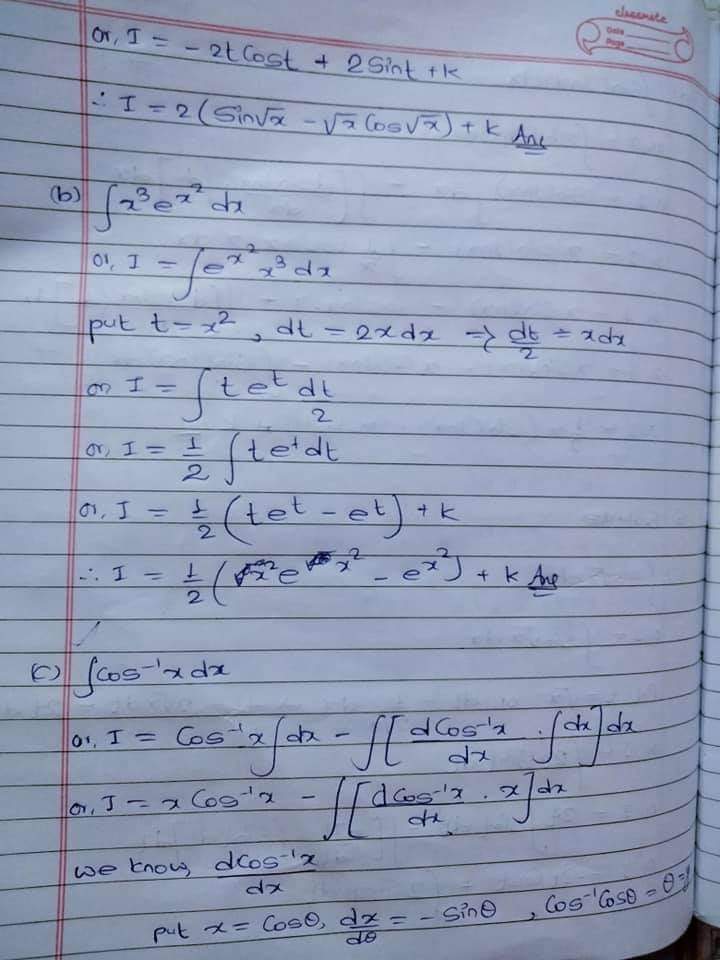 classmate
Date
Page
or, I = -2t Cost + 2 Sint + k
∴ I = 2 (Sin√x - √x Cos√x) + k Ans
(b) ∫x³e^x² dx
or, I = ∫e^x² x³ dx
put t = x², dt = 2x dx ⇒ dt/2 = x dx
or I = ∫ t e^t dt/2
or, I = 1/2 ∫ t e^t dt
or, I = 1/2 (t e^t - e^t) + k
∴ I = 1/2 (x² e^x² - e^x²) + k Ans
(c) ∫Cos⁻¹x dx
or, I = Cos⁻¹x ∫dx - ∫[dCos⁻¹x/dx . ∫dx] dx
or, I = x Cos⁻¹x - ∫[dCos⁻¹x/dx . x] dx
we know, dCos⁻¹x/dx
put x = Cosθ, dx/dθ = - Sinθ , Cos⁻¹Cosθ = θ = y